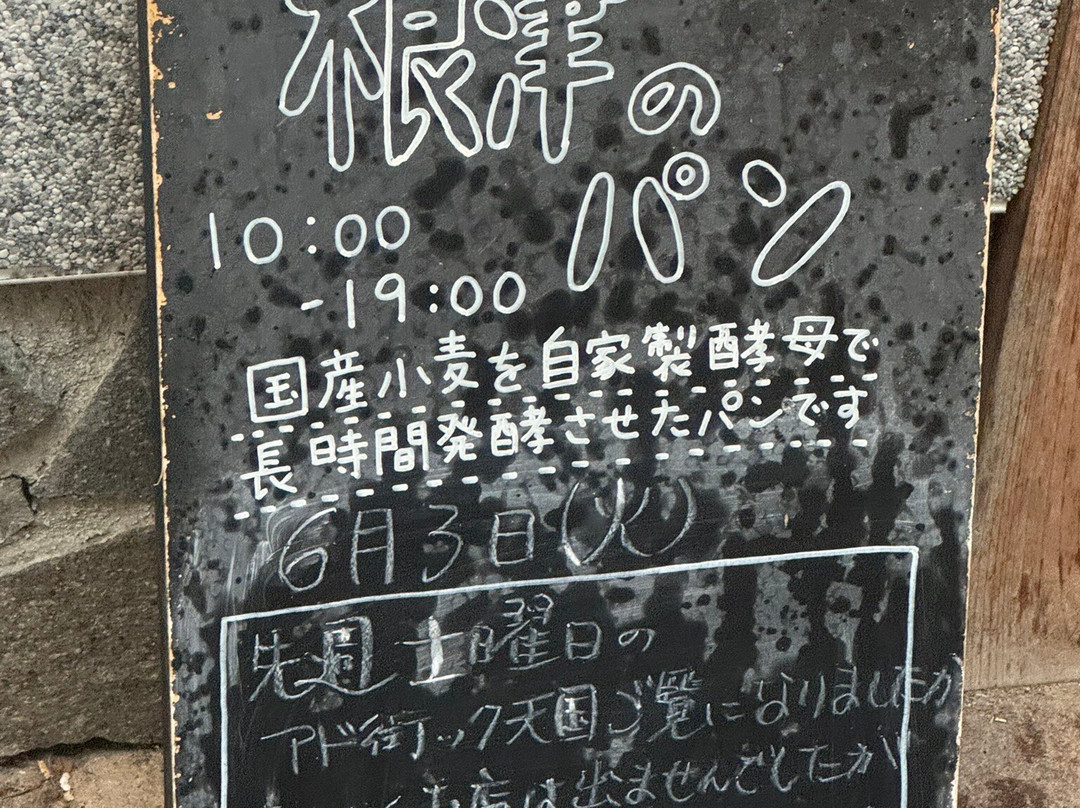 根津の
パン
10:00
-19:00
国産小麦を自家製酵母で
長時間発酵させたパンです
6月3日(火)
先週土曜日の
アド街ック天国ご覧になりましたか
お店は出ませんでしたが